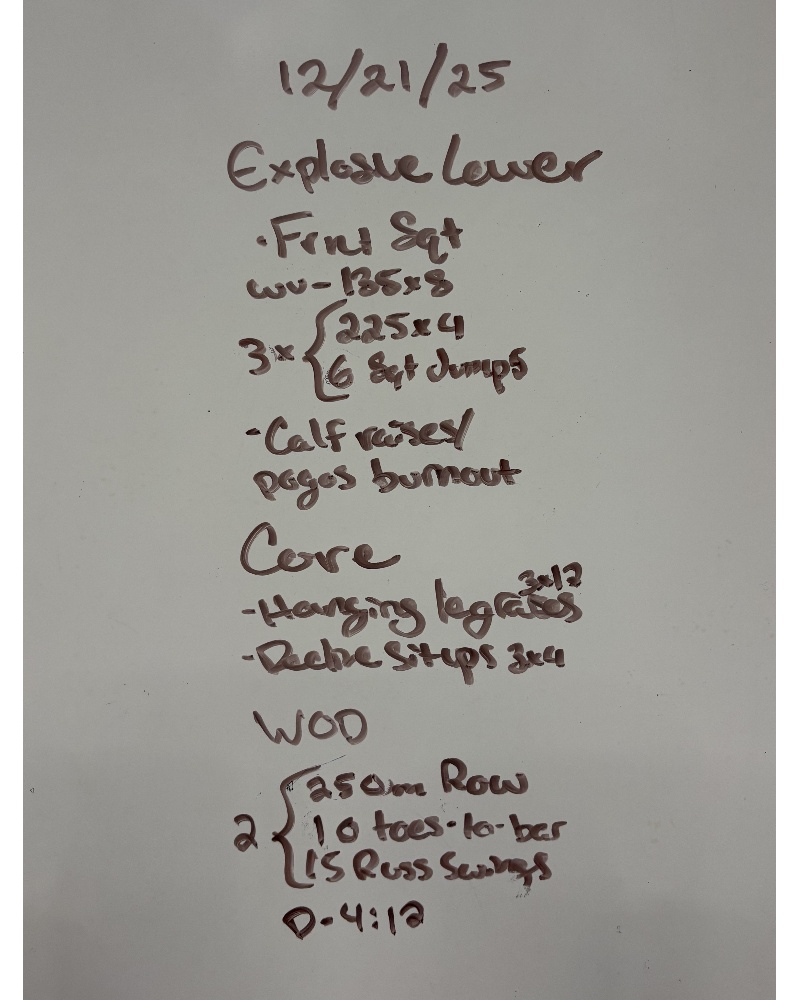 12/21/25
Explosive Lower
·Frnt Sqt
wu-135x8
3x { 225x4
6 Sqt Jumps
-Calf raises/
pogos burnout
Core
-Hanging leg raises 3x12
-Decline Situps 3x4
WOD
2 { 250m Row
10 toes-to-bar
15 Russ Swings
D-4:12